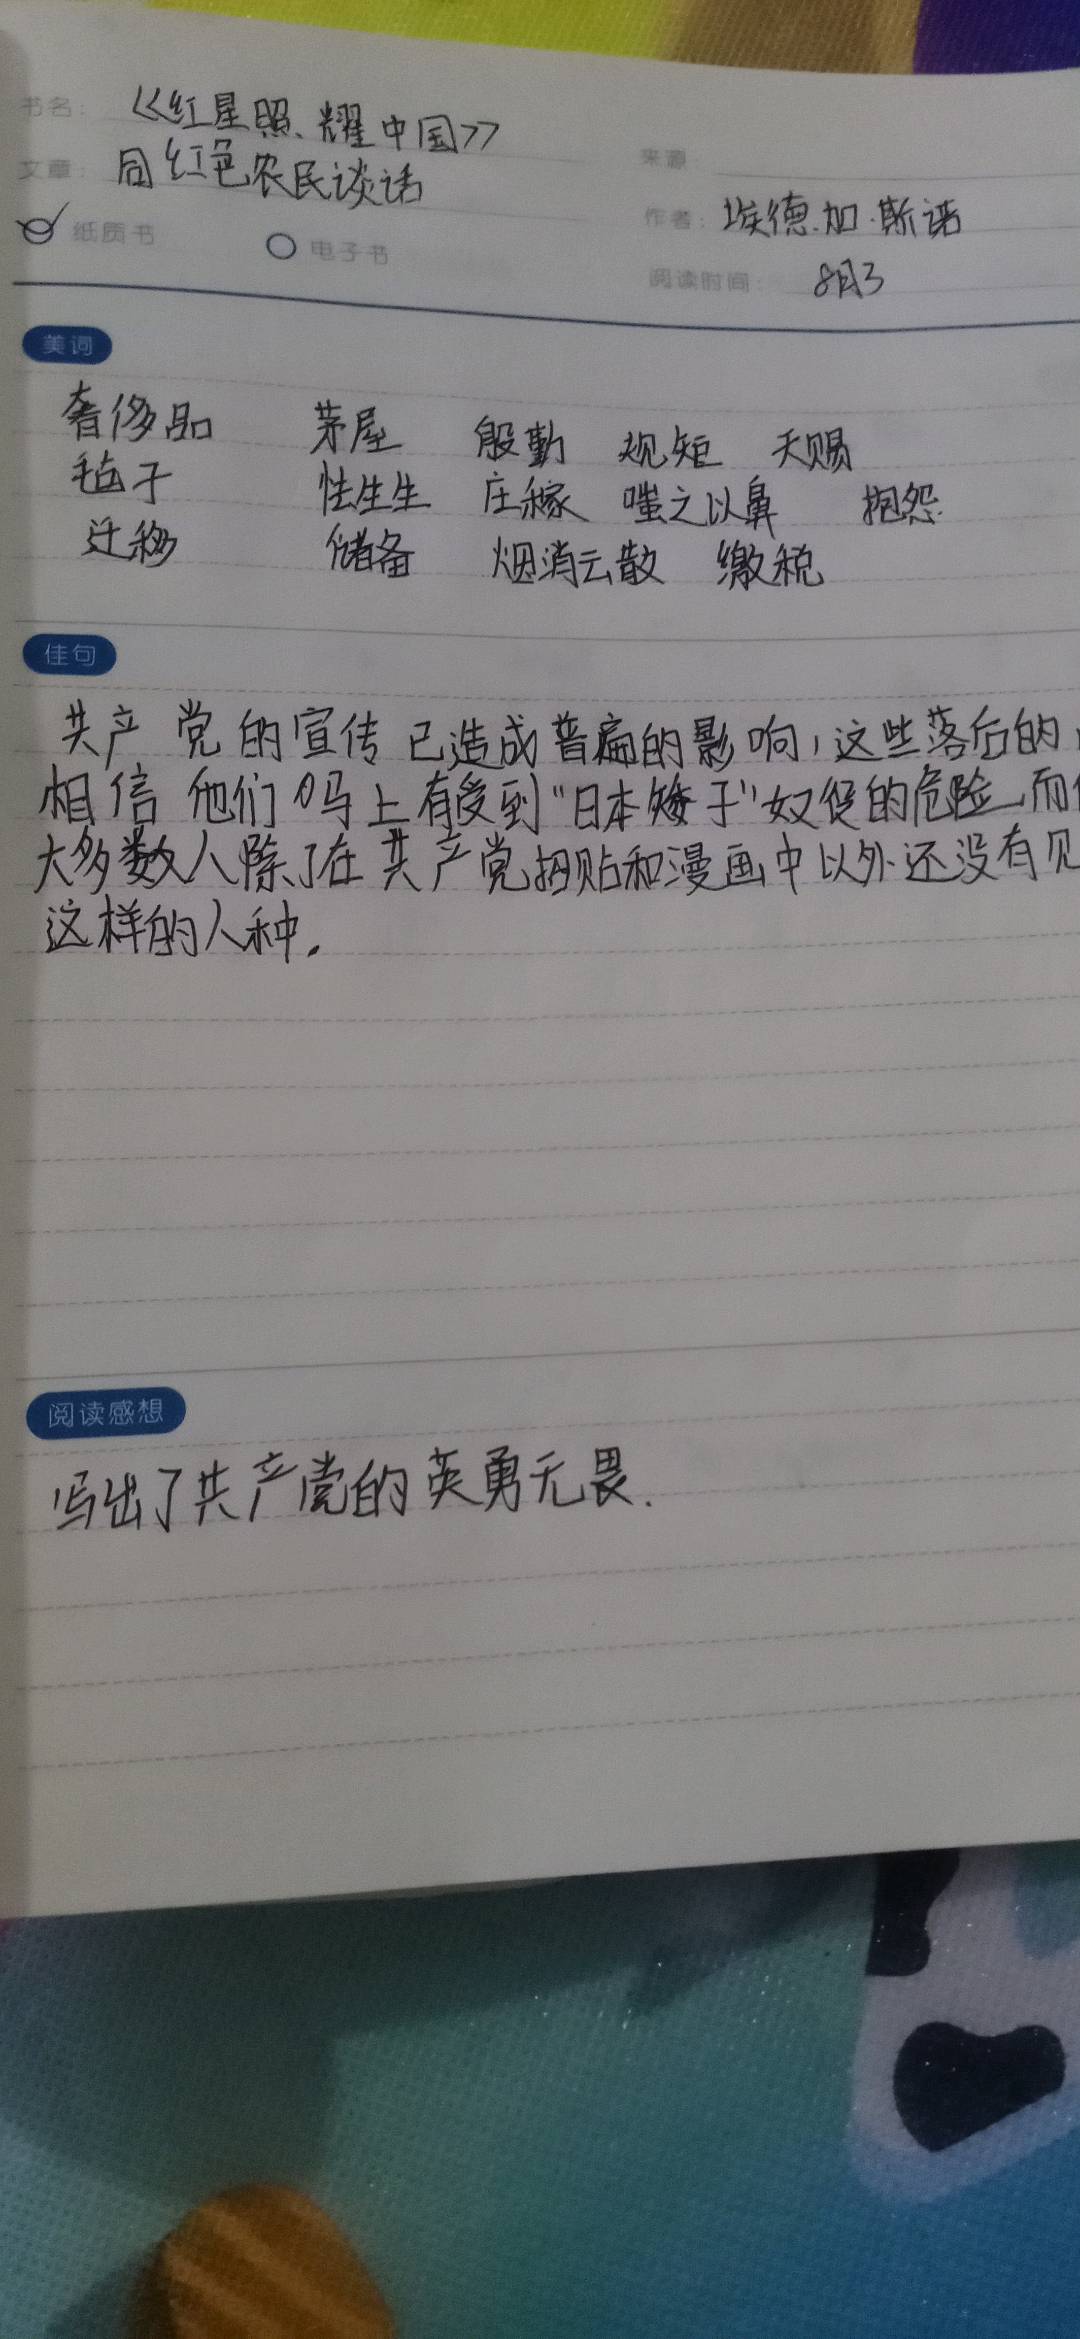 书名：《红星照耀中国》
文章：同红色农民谈话
来源
作者：埃德.加.斯诺
纸质书 电子书
阅读时间：8月3
美词
奢侈品 茅屋 殷勤 规矩 天赐
毡子 性生生 庄稼 嗤之以鼻 抱怨
迁移 储备 烟消云散 缴税
佳句
共产党的宣传已造成普遍的影响，这些落后的
相信他们马上有受到“日本矮子”奴役的危险，而
大多数人除了在共产党招贴和漫画中以外还没有见
这样的人种.
阅读感想
写出了共产党的英勇无畏.